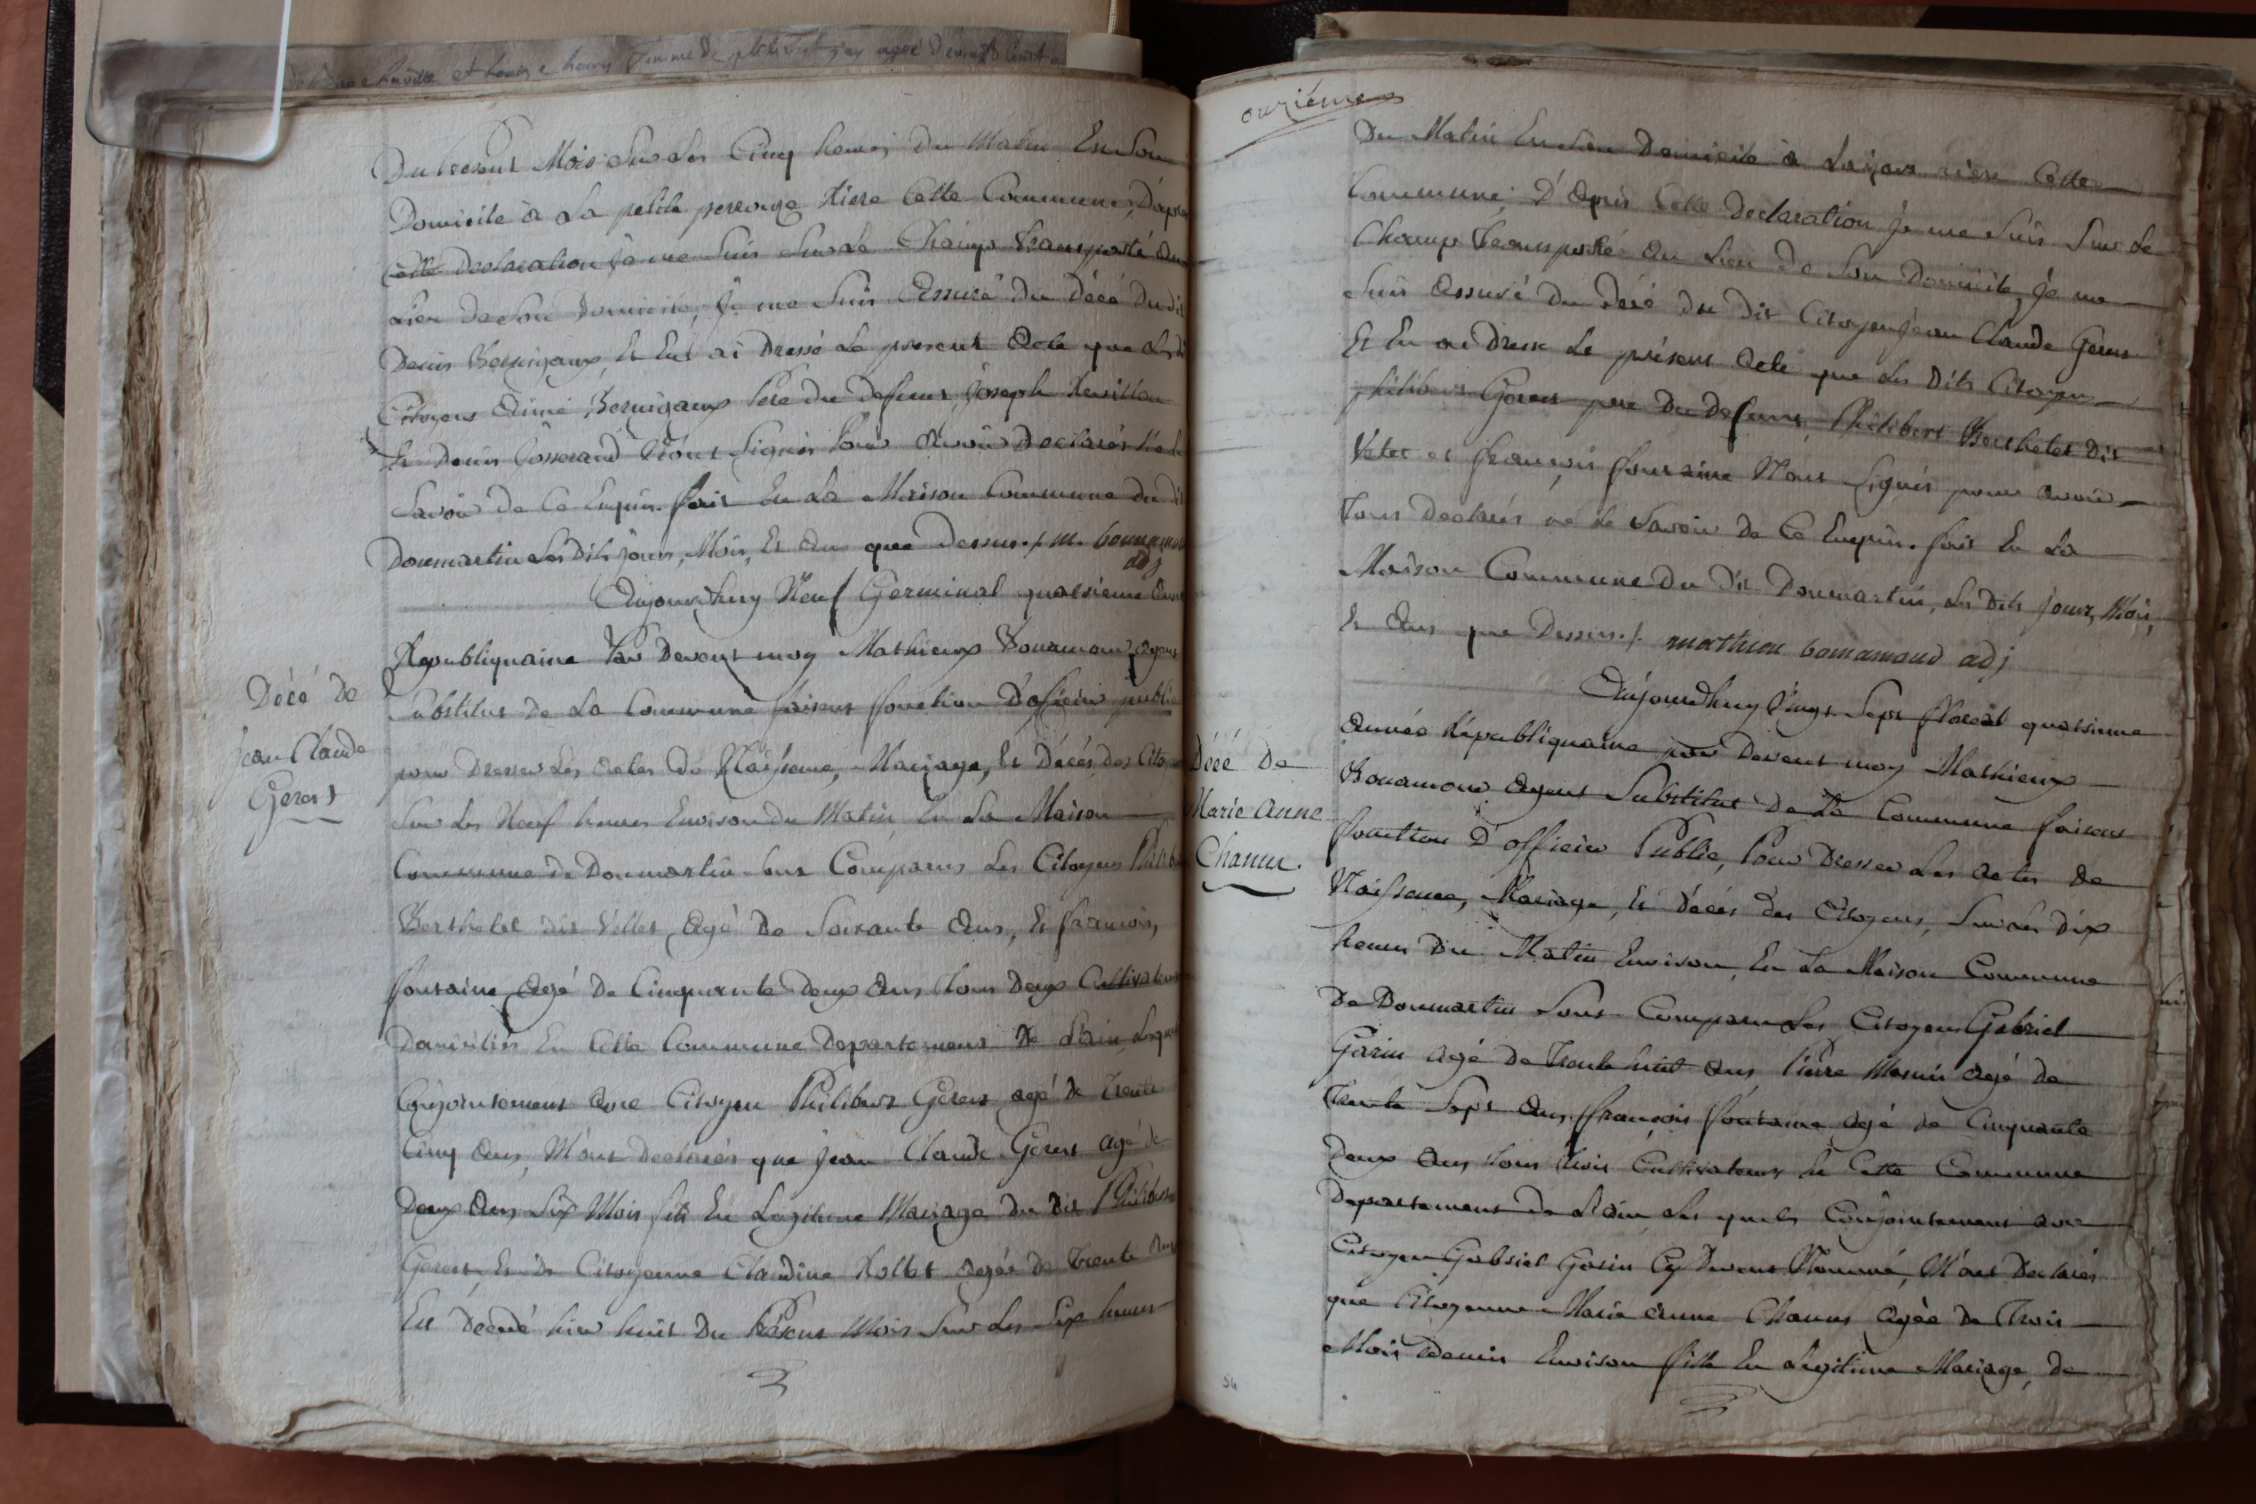 Du present Mois Sur Les Cinq heures Du Matin En Son
Domicile à La petite Cette Commune, D'après
Cette declaration je me Suis Sur Le Champ transporté au
Lieu de Son Domicile, je me Suis Assuré Du Décé Du dit
Denis et En ai Dressé Le present Acte que Les dit
Citoyens Aimé Pere du Deffunt, Joseph
Et Denis N'ont Signés Pour Avoir Declarés Ne Le
Savoir de Ce Enquis. fait En La Maison Commune Du dit
Donmartin Les Dits jours, Mois, Et Ans que Dessus./. m. bonnamour
adj
Aujourdhuy Neuf Germinal quatrieme Année
Republiquaine Par Devent moy Mathieux Bonamour Agent
Substitut de La Commune faisent fonction D'oficier public
pour Dresser Les Actes De Naissance, Mariage, Et Décés, des Citoyens
Décé De
Jean Claude
Gerert
Sur Les Neuf heures Environ du Matin En La Maison
Commune de Donmartin Sont Comparus Les Citoyens Philibert
Berthelet dit Vellet Agé De Soixante Ans, Et francois,
fontaine Agé De Cinquante deux Ans Tous Deux Cultivateurs
Domiciliés En Cette Commune Departement De L'ain Lesquels
Conjointement Avec Citoyen Philibert Gerert agé De Trente
Cinq Ans, M'ont Declarés que jean Claude Gerert Agé de
Deux Ans Six Mois fils En Legitime Mariage Du Dit Philibert
Gerert Et De Citoyenne Claudine Rollet Agée de Trente Ans
Est Decedé hier huit Du Présent Mois Sur Les Six heures
ouziéme
Du Matin En Son Domicile à riere Cette
Commune, D'Apris Cette Declaration Je me Suis Sur Le
Champ Transporté Au Lieu De Son Domicile, je me
Suis Assuré Du Décé Du Dit Citoyen jean Claude Gerert
Et En ai Dressé Le présent Acte que Les Dits Citoyens
philibert Gerert pere Du Deffunt, Philibert Berthelet Dit
Velet et françois fontaine N'ont Signés pour Avoir
Tous Declarés ne Le Savoir De Ce Enquis. fait En La
Maison Commune Du Dit Donmartin, Les Dits Jours, Mois,
Et Ans que Dessus./. mathieu bonamoud adj
Aujourdhuy Vingt Sept floreal quatrieme
Année Républiquaine par Devent moy Mathieux
Décé De
Marie Anne
Chanu
Bonamour Agent Substitut De La Commune faisent
fonction D'officier Public, Pour Dresser Les Actes De
Naissance, Mariage, Et Décés des Citoyens, Sur Les Dix
heures Du Matin Environ En La Maison Commune
De Donmartin Sont Comparu Les Citoyens Gabriel
Gorin Agé De Trente huit Ans Pierre Agé De
Trente Sept Ans, françois fontaine Agé De Cinquante
Deux Ans tous trois Cultivateurs De Cette Commune
Departement De L'ain Les quels Conjointement Avec
Citoyen Gabriel Gorin Cy Devent Nommé, M'ont Declarés
que Citoyenne Marie Anne Chanu Agée De Trois
Mois Demis Environ fille En Legitime Mariage, De